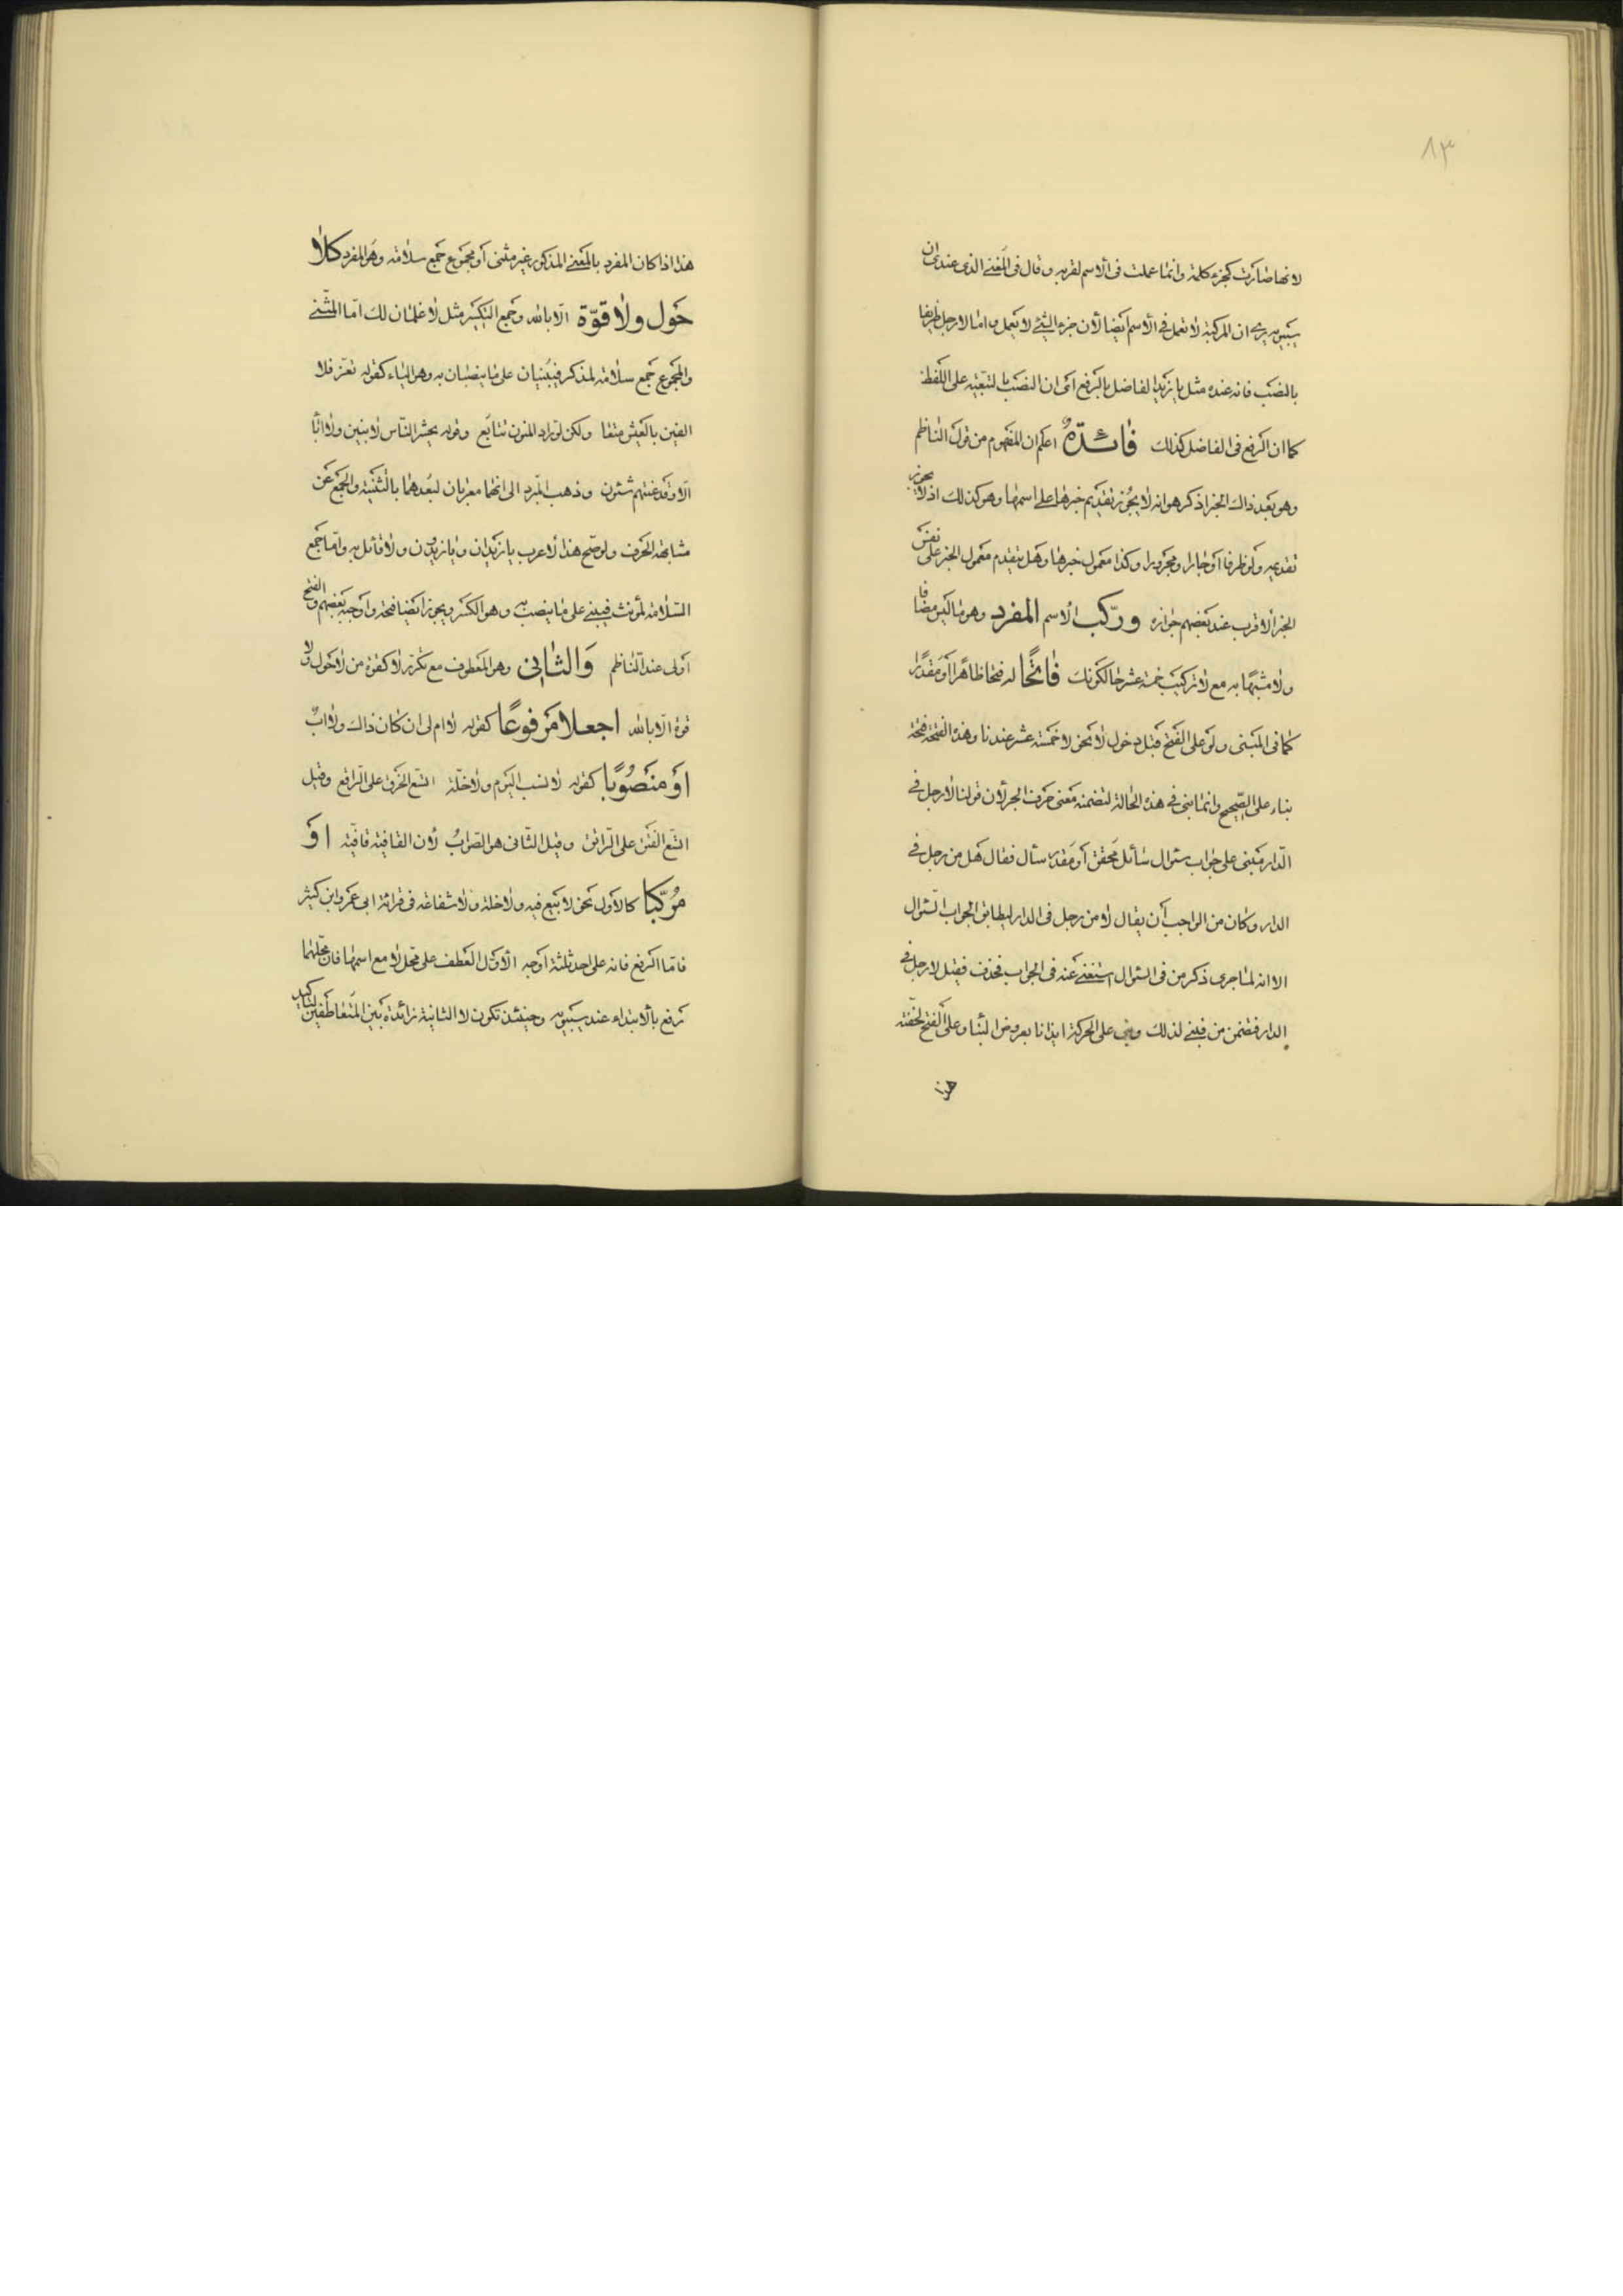 ٨٣
لانها صارت كجزء كلمة وانما عملت فى الاسم لقربه وقال فى المغنى الذى عندى ان
سيبويه يرى ان المركبة لا تعمل فى الاسم ايضا لأن جزء الشئ لا يعمل واما لا رجل ظريفا
بالنصب فانه عنده مثل يا زيد الفاضل بالرفع اى ان النصب بالتبعية على اللفظ
كما ان الرفع فى الفاضل كذلك فائدة اعلم ان المفهوم من قول الناظم
وهو بعد ذاك الخبر اذكر هو انه لا يجوز تقديم خبرها على اسمها وهو كذلك اذ لا يجوز
تقديمه ولو ظرفا او جارا ومجرورا وكذا معمول خبرها وهل يتقدم معمول الخبر على نفس
الخبر الاقرب عند بعضهم جوازه وركّب الاسم المفرد وهو ما ليس مضافا
ولا مشبها به مع لا تركيب خمسة عشر حالكونك فاتحًا له فتحا ظاهرا أو مقدرا
كما فى المبنى ولو على الفتح قبل دخول لا نحو لا خمسة عشر عندنا وهذه الفتحة فتحة
بناء على الصّحيح وانما بنى فى هذه الحالة لتضمنه معنى حرف الجر لأن قولنا لا رجل فى
الدّار مبنى على جواب سئوال سائل محقق أو مقدر سأل فقال هل من رجل فى
الدار وكان من الواجب أن يقال لا من رجل فى الدار ليطابق الجواب السّئوال
الا انه لما جرى ذكر من فى السئوال استغنى عنه فى الجواب فحذف فقيل لا رجل فى
الدار فتضمن من فبنى لذلك وبنى على الحركة ايذانا بعروض البناء وعلى الفتح لخفّته
هذا
هذا اذا كان المفرد بالمعنى المذكور غير مثنى أو مجموع جمع سلامة وهو المفرد كلا
حول ولا قوّة الّا بالله وجمع التكسير مثل لا غلمان لك امّا المثّنى
والمجموع جمع سلامة لمذكر فيبنيان على ما ينصبان به وهو الياء كقوله تعزّ فلا
الفين بالعيش متعا ولكن لورّاد المنون تتابع وقوله يحشر النّاس لا بنين ولا آبا
الّا وقد عنتهم شئون وذهب المبّرد الى انهما معربان لبعدهما بالتثنية والجمع عن
مشابهة الحرف ولو صّح هذا لاعرب يا زيدان ويا زيدون ولا قائل به وامّا جمع
السّلامة لمؤنث فيبنى على ما ينصب به وهو الكسر ويجوز ايضا فتحه واوجبه بعضهم والفتح
اولى عند النّاظم وَالثانى وهو المعطوف مع تكرّر لا كقوة من لا حول ولا
قوة الّا بالله اجعلا مرفوعًا كقوله لا ام لى ان كان ذاك ولا ابٌ
أو منصُوبًا كقوله لا نسب اليوم ولا خلّة اتّسع الخرق على الرّاقع وقيل
اتّسع الفتق على الرّاتق وقيل الثّانى هو الصّوابُ لأن القافية قافيّة اوَ
مُركّبا كالأول نحو لا بيع فيه ولا خلة ولا شفاعة فى قرائة ابى عمرو ابن كثير
فامّا الرفع فانه على احد ثلثة اوجه الأوّل العطف على محل لا مع اسمها فان محلّهما
رفع بالابتداء عند سيبويه وحينئذ تكون لا الثانية زائدة بين المتعاطفين لتأكيد